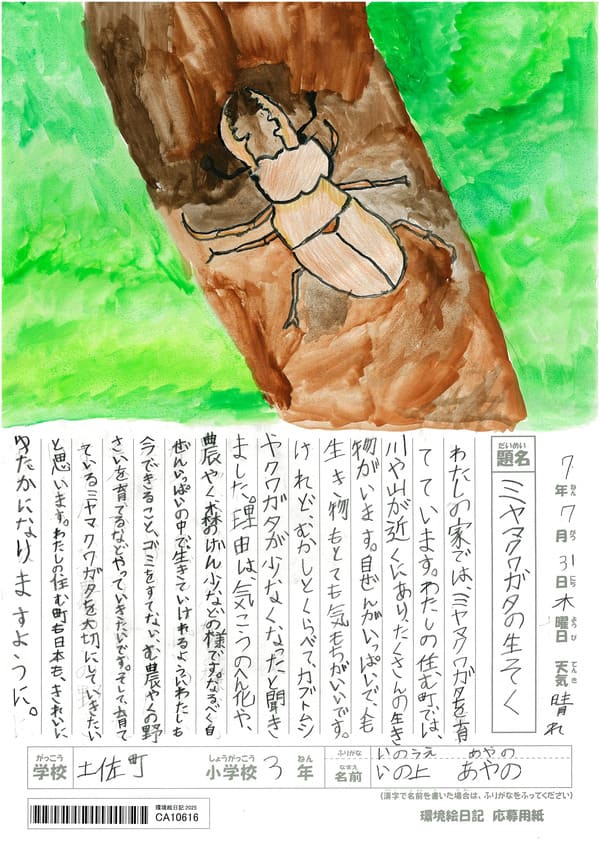 7年ねん7月がつ31日にち木曜日ようび 天気てんき 晴れ
だいめい
題名
ミヤマクワガタの生そく
わたしの家では、ミヤマクワガタを育
てています。わたしの住む町では、
川や山が近くにあり、たくさんの生き
物がいます。自ぜんがいっぱいで、人も
生き物もとても気もちがいいです。
けれど、むかしとくらべて、カブトムシ
やクワガタが少なくなったと聞き
ました。理由は、気こうのへん化や、
農やく、森のげん少などの様です。なるべく自
ぜんいっぱいの中で生きていけれるように、わたしも
今できること、ゴミをすてない、む農やくの野
さいを育てるなどやっていきたいです。そして、育て
ているミヤマクワガタを大切にしていきたい
と思います。わたしの住む町も日本も、きれいに
ゆたかになりますように。
がっこう
学校
土佐町
しょうがっこう
小学校
3
ねん
年
ふりがな
いのうえ あやの
なまえ
名前
いの上 あやの
(漢字で名前を書いた場合は、ふりがなをふってください)
環境絵日記2025
CA10616
環境絵日記 応募用紙